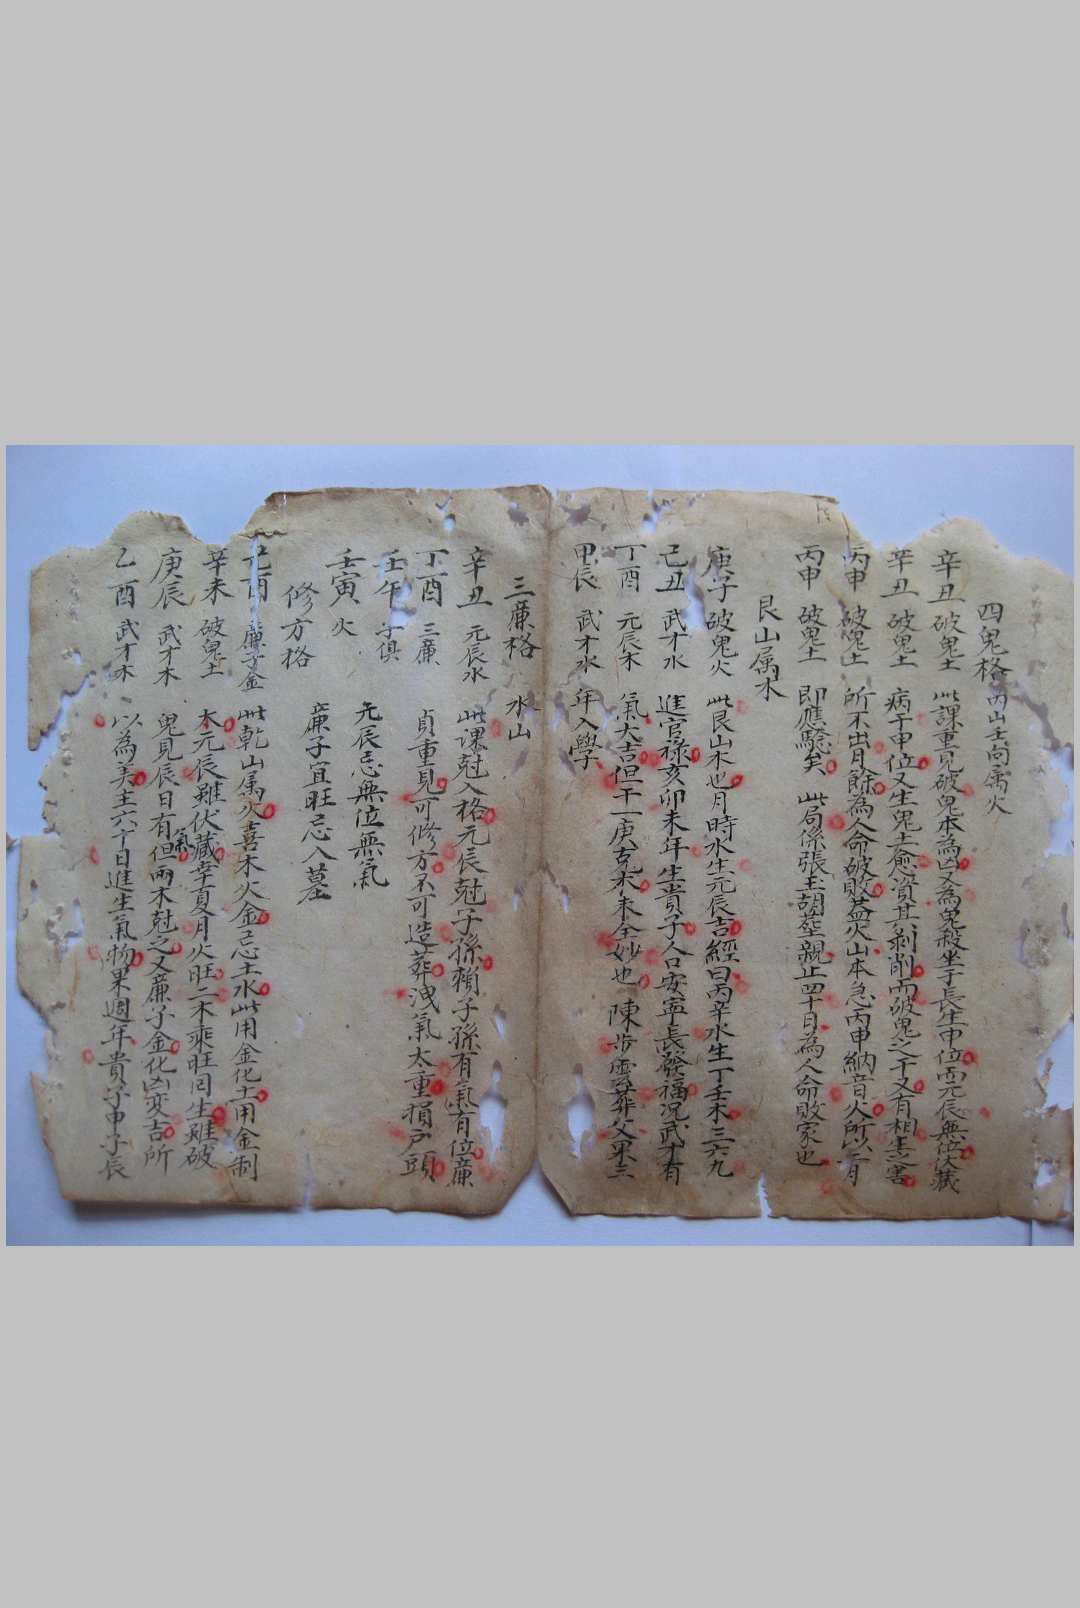 四鬼格 丙山壬向属火
辛丑 破鬼土 此課重見破鬼本為凶又為鬼殺坐子長生申位而元辰無位伏藏
辛丑 破鬼土 病于申位又生鬼土愈資其剥削而破鬼之干又有相生之害
丙申 破鬼土 所不出月餘為人命破敗蓋火山本急丙申納音火所以一月
丙申 破鬼土 即應驗矣 此局係張玉胡塟親止四十日為人命敗家也
艮山属木
庚子 破鬼火 此艮山木也月時水生元辰吉經曰丙辛水生丁壬木三六九
己丑 武才水 進官禄亥卯未年生貴子人口安寧長發福况武才有
丁酉 元辰木 氣大吉但干一庚克木未全妙也 陳步雲葬父果三
甲辰 武才水 年入學
三廉格 水山
辛丑 元辰水 此課尅入格元辰尅子孫賴子孫有氣有位廉
丁酉 三廉 貞重見可修方不可造葬洩氣太重損戸頭
壬午 子俱 元辰忌無位無氣
壬寅 火 廉子宜旺忌入墓
修方格
己酉 廉子金 此乾山属火喜木火金忌土水此用金化土用金制
辛未 破鬼土 木元辰雖伏藏幸夏月火旺二木乘旺囘生雖破
庚辰 武才木 鬼見辰日有氣但兩木尅之又廉子金化凶变吉所
乙酉 武才木 以為美主六十日進生氣物果週年貴子申子辰